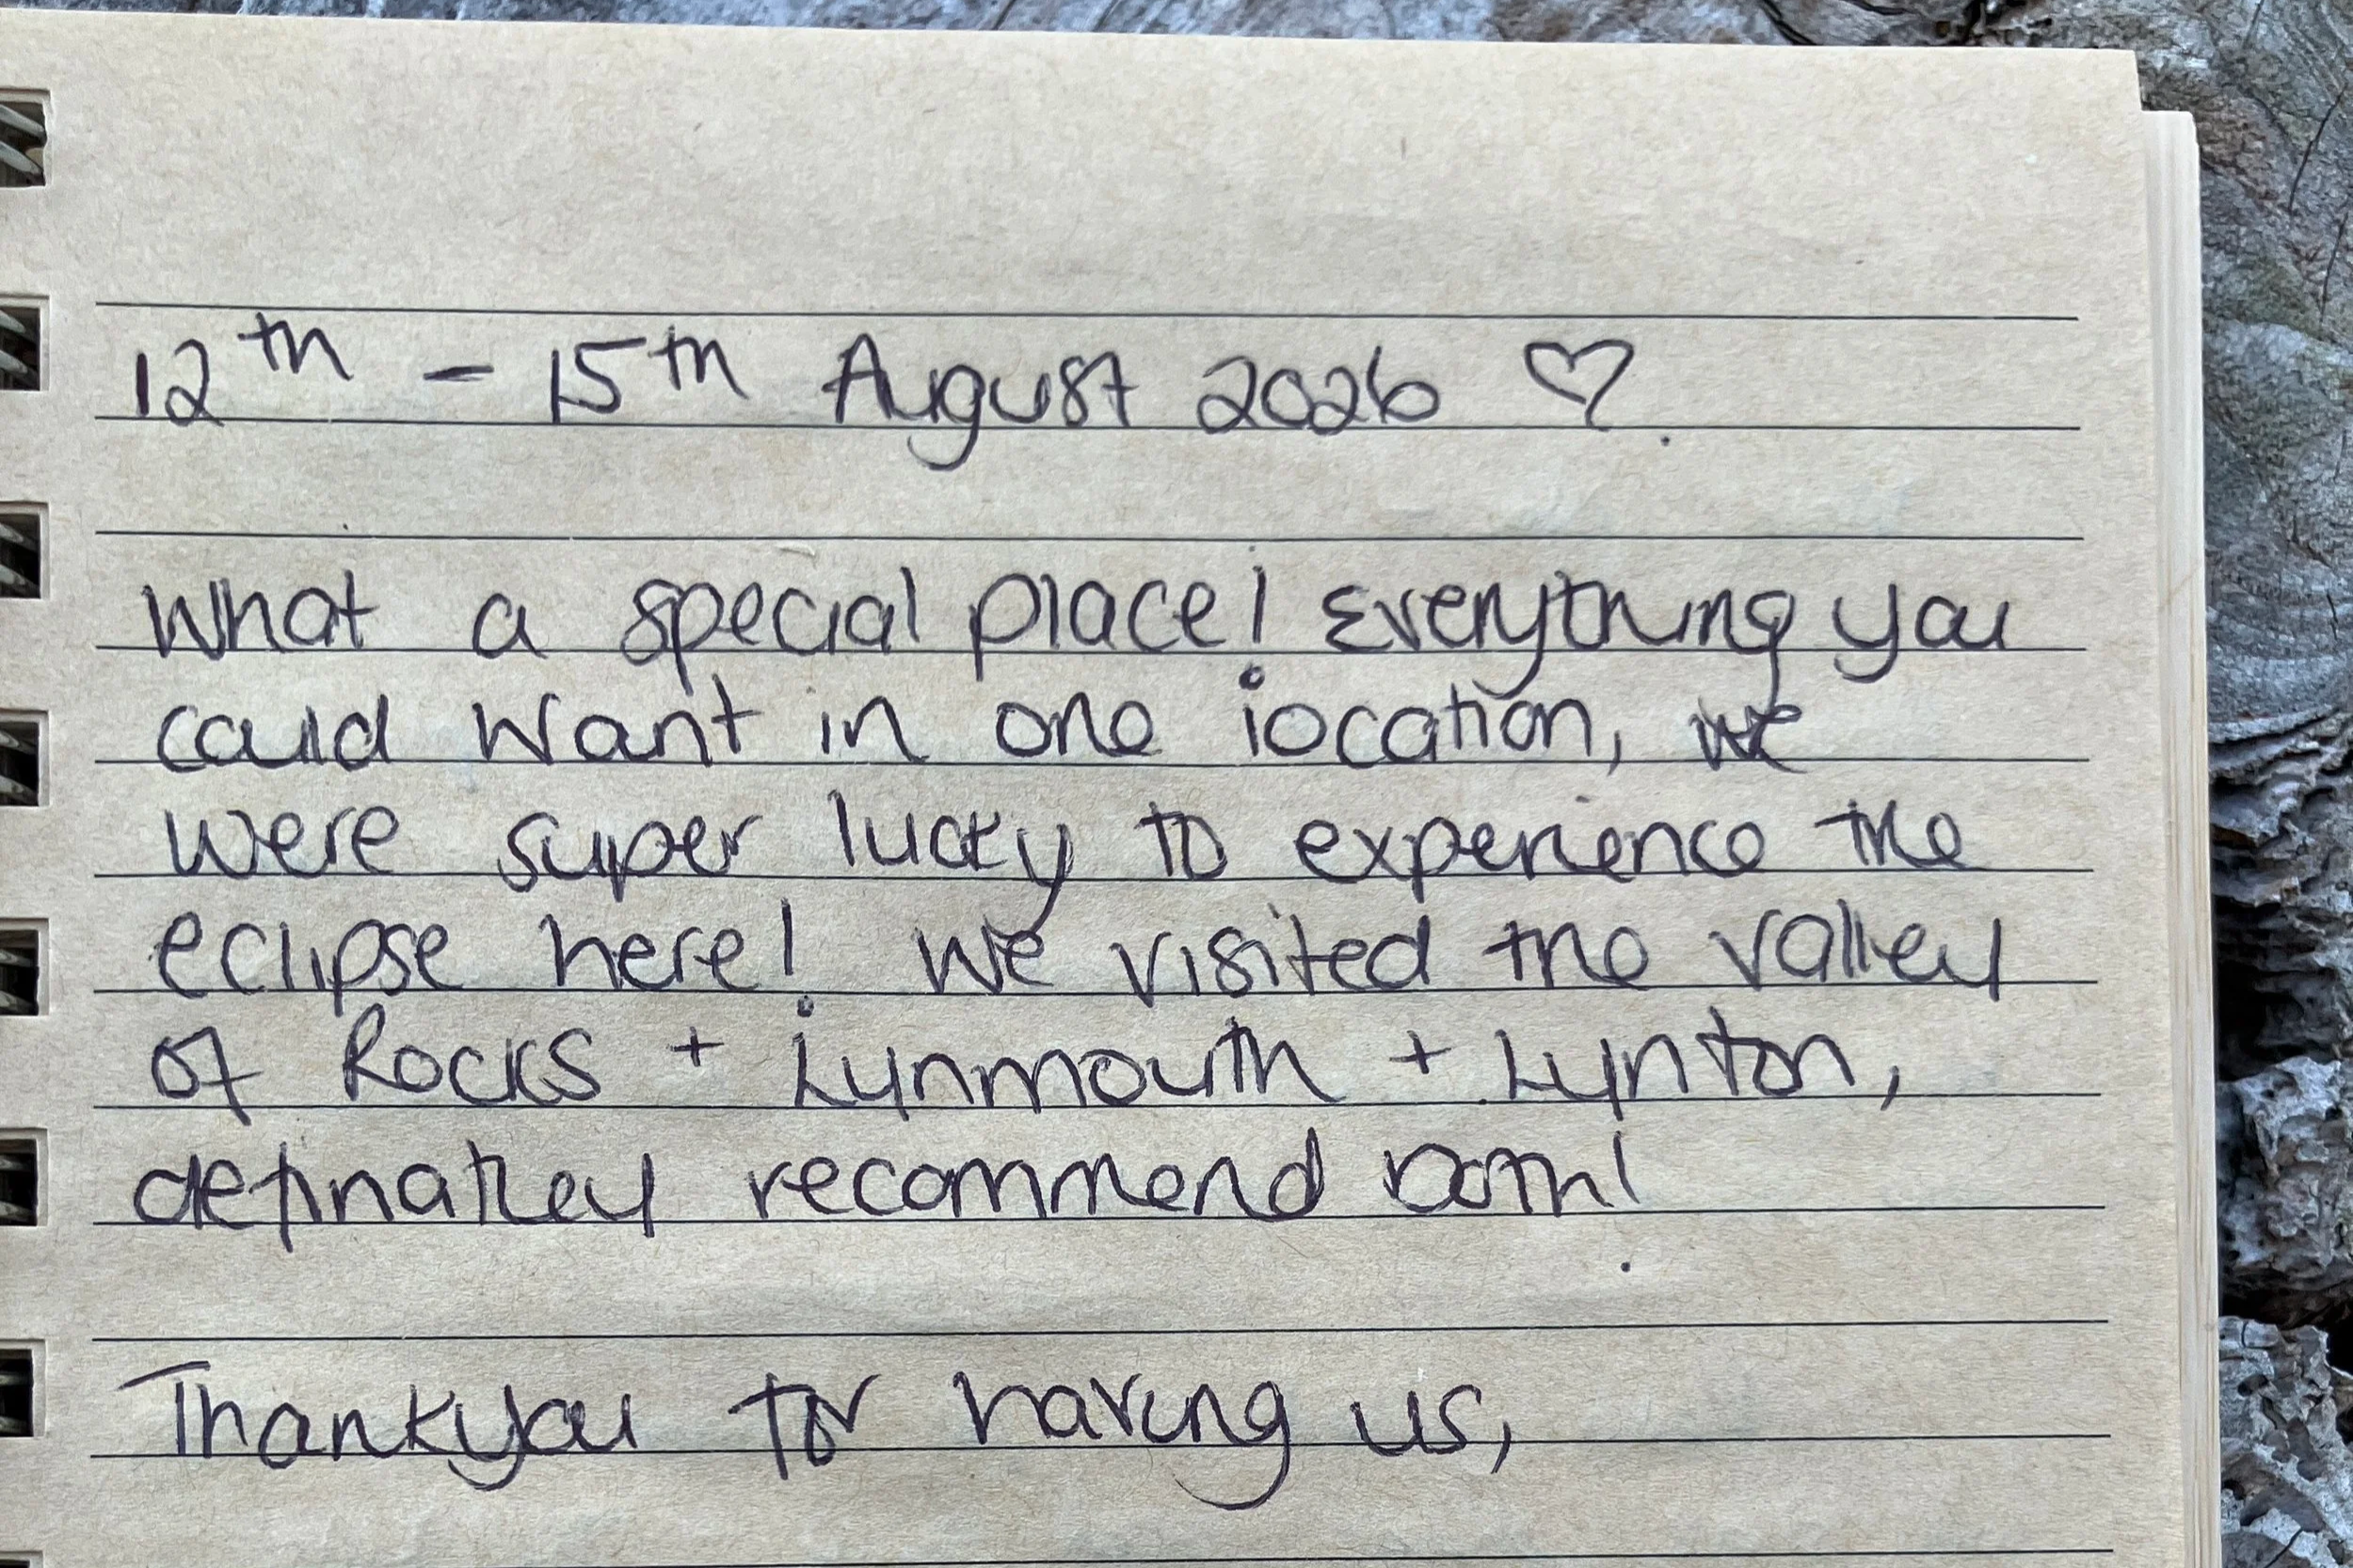 12th - 15th August 2026 ♡.
What a special place! Everything you
could want in one location, we
were super lucky to experience the
eclipse here! We visited the valley
of Rocks + Lynmouth + Lynton,
definatley recommend both!
Thankyou for having us,